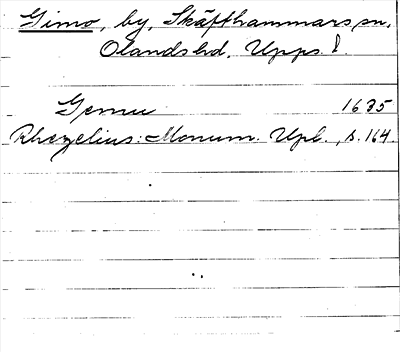 Gimo, by, Skäfthammars sn,
Olands hd, Upps. l.
Gemu 1635
Rhezelius: Monum. Upl., s. 164.